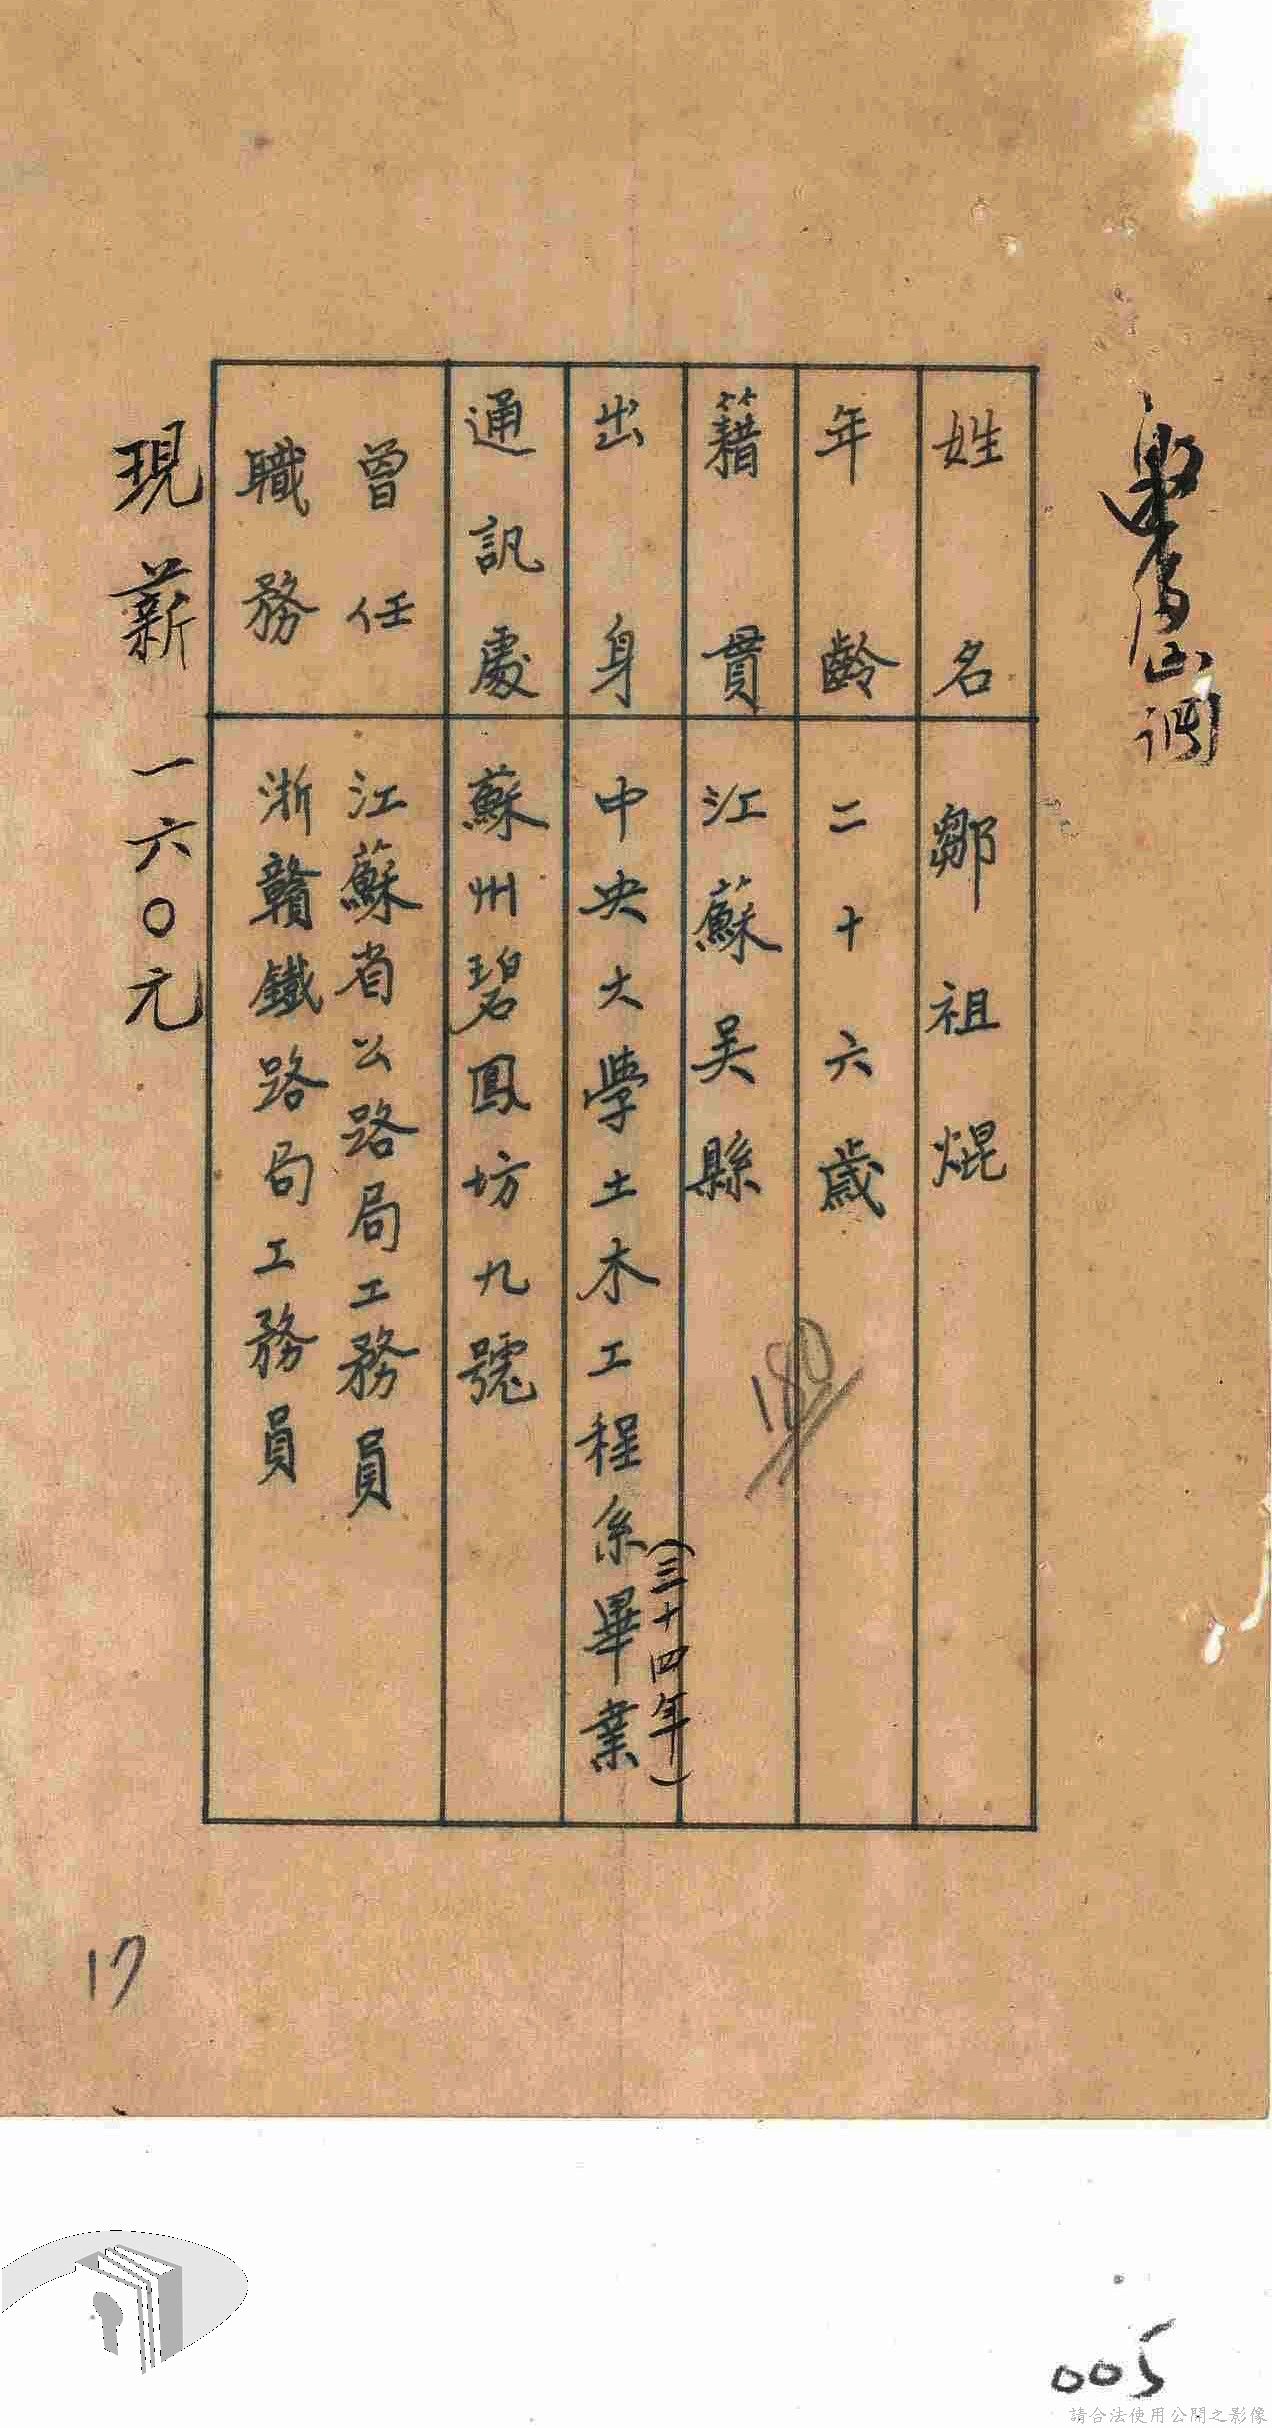 姓名 鄒祖焜
年齡 二十六歲
籍貫 江蘇吳縣
180
出身 中央大學土木工程系畢業
(三十四年)
通訊處 蘇州碧鳳坊九號
曾任職務 江蘇省公路局工務員
浙贛鐵路局工務員
現薪一六〇元
17
005
請合法使用公開之影像